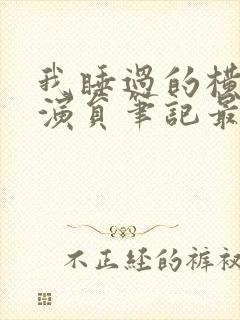 我睡過的橫
演員筆記最
不正経的裤衩